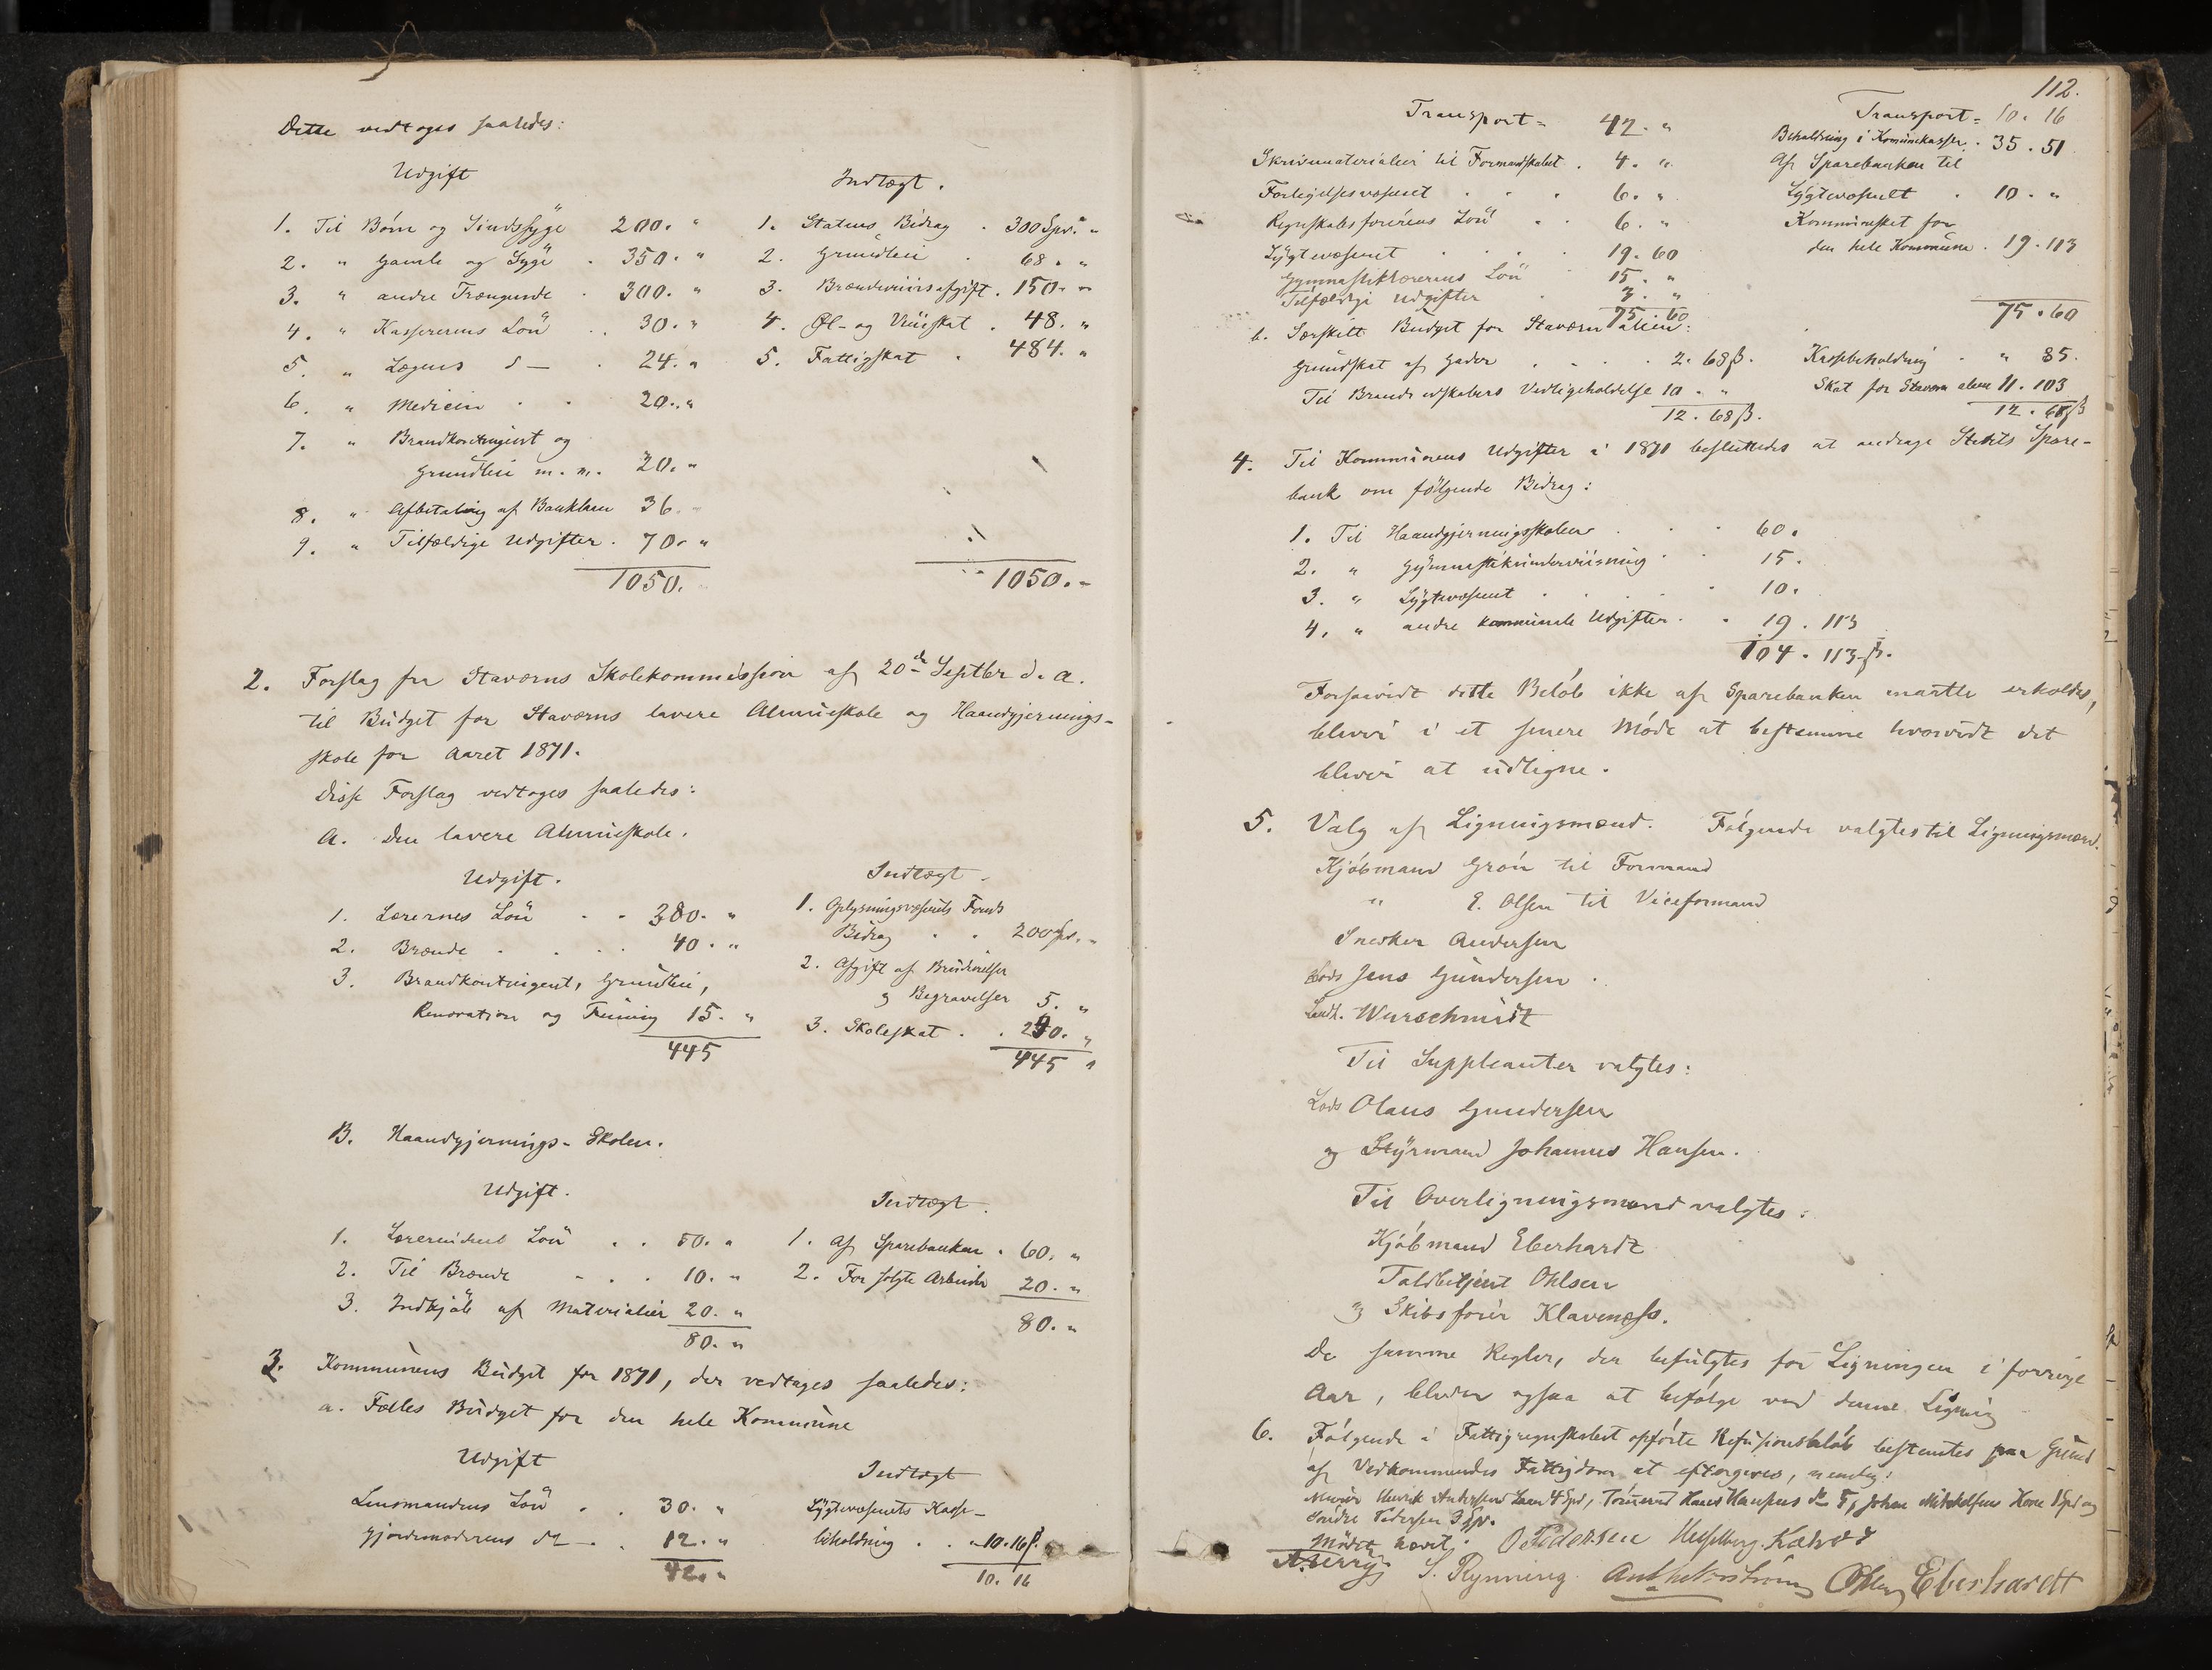 Dette vedtoges saaledes:
Udgift
1. Til Børn og Sindssyge 200. "
2. " Gamle og Syge . 350. "
3. " andre Trængende . 300. "
4. " Kassererens Løn . . 30. "
5. " Lægens d— . 24. "
6. " Medicin . . 20. "
7. " Brandkontingent og
Grundleie m. m. 20. "
8. " Afbetaling af Banklaan 36. "
9. " Tilfældige Udgifter . 70. "
1050.
Indtægt.
1. Statens Bidrag . 300 Spd. "
2. Grundleie . 68. "
3. Brændeviinsafgift . 150. "
4. Øl- og Viinskat . 48. "
5. Fattigskat . 484. "
1050. "
2. Forslag fra Staværns Skolekommission af 20de Septbr d. A.
til Budget for Staværns lavere Almueskole og Haandgjernings-
skole for Aaret 1871.
Disse Forslag vedtoges saaledes:
A. Den lavere Almueskole.
Udgift.
1. Lærernes Løn . . 380. "
2. Brænde . . . . 40. "
3. Brandkontingent, Grundleie,
Renovation og Feining 15. "
445
Indtægt.
1. Oplysningsvæsenets Fonds
Bidrag . . 200 Spd. "
2. Afgift af Brudevielser
og Begravelser 5. "
3. Skoleskat . . 240. "
445 "
B. Haandgjernings-Skolen.
Udgift.
1. Lærerindens Løn . . 50. "
2. Til Brænde . . . 10. "
3. Indkjøb af Materialier 20. "
80. "
Indtægt.
1. Af Sparebanken . 60. "
2. For solgte Arbeider 20. "
80. "
3. Kommunens Budget for 1871, der vedtoges saaledes:
a. Fælles Budget for den hele Kommune
Udgift
Lensmandens Løn . . 30. "
Gjordemoderens do . . 12. "
42. "
Indtægt
Lygtevæsenets Kasse-
beholdning . . 10. 16 ß.
10. 16
112.
Transport = 42. "
Skrivematerialier til Formandskabet . 4. "
Forligelsesvæsenet . . . 6. "
Regnskabsførerens Løn . . 6. "
Lygtevæsenet . . . . 19. 60
Gymnastiklærerens Løn . 15. "
Tilfældige Udgifter . 3. "
75. 60
Transport = 10. 16
Beholdning i Komunekassen . 35. 51
Af Sparebanken til
Lygtevæsenet . 10. "
Kommuneskat for
den hele Kommune . 19. 113
75. 60
b. Særskilt Budget for Staværn alene:
Grundskat af Gader . . . 2. 68 ß.
Til Brandredskabers Vedligeholdelse 10 . "
12. 68 ß.
Kassebeholdning . " 85.
Skat for Stavern alene 11. 103
12. 68 ß
4. Til Kommunens Udgifter i 1871 besluttedes at andrage Stedets Spare-
bank om følgende Bidrag:
1. Til Haandgjerningsskolen . . 60.
2. " Gymnastikunderviisning . . 15.
3. " Lygtevæsenet . . . . 10.
4. " andre kommunale Udgifter . . 19. 113
104. 113 ß.
Forsaavidt dette Beløb ikke af Sparebanken maatte erholdes,
bliver i et senere Møde at bestemme hvorvidt det
bliver at udligne.
5. Valg af Ligningsmænd. Følgende valgtes til Ligningsmænd.
Kjøbmand Grøn til Formand
" E. Olsen til Viceformand
Snedker Andersen
Lods Jens Gundersen.
Landh. Wurschmidt
Til Suppleanter valgtes:
Lods Olaus Gundersen
og Styrmand Johannes Hansen.
Til Overligningsmænd valgtes:
Kjøbmand Eberhardt
Toldbetjent Ohlsen
og Skibsfører Klavenæss.
De samme Regler, der befulgtes for Ligningen i forrige
Aar, bliver ogsaa at befølge ved denne Ligning
6. Følgende i Fattigregnskabet opførte Refusionsbeløb bestemtes paa Grund
af Vedkommendes Fattigdom at eftergives, nemlig:
Henrik Andersens 4 Spd, Tømmermd Hans Hansens do 5, Johan Mikkelsens Kone 1 Spd og
Søndre Pedersen 3 Spd.
Mødet hævet.
O Pedersen Hesselberg. Kahrss
S. Rynning. Ohlsen Eberhardt